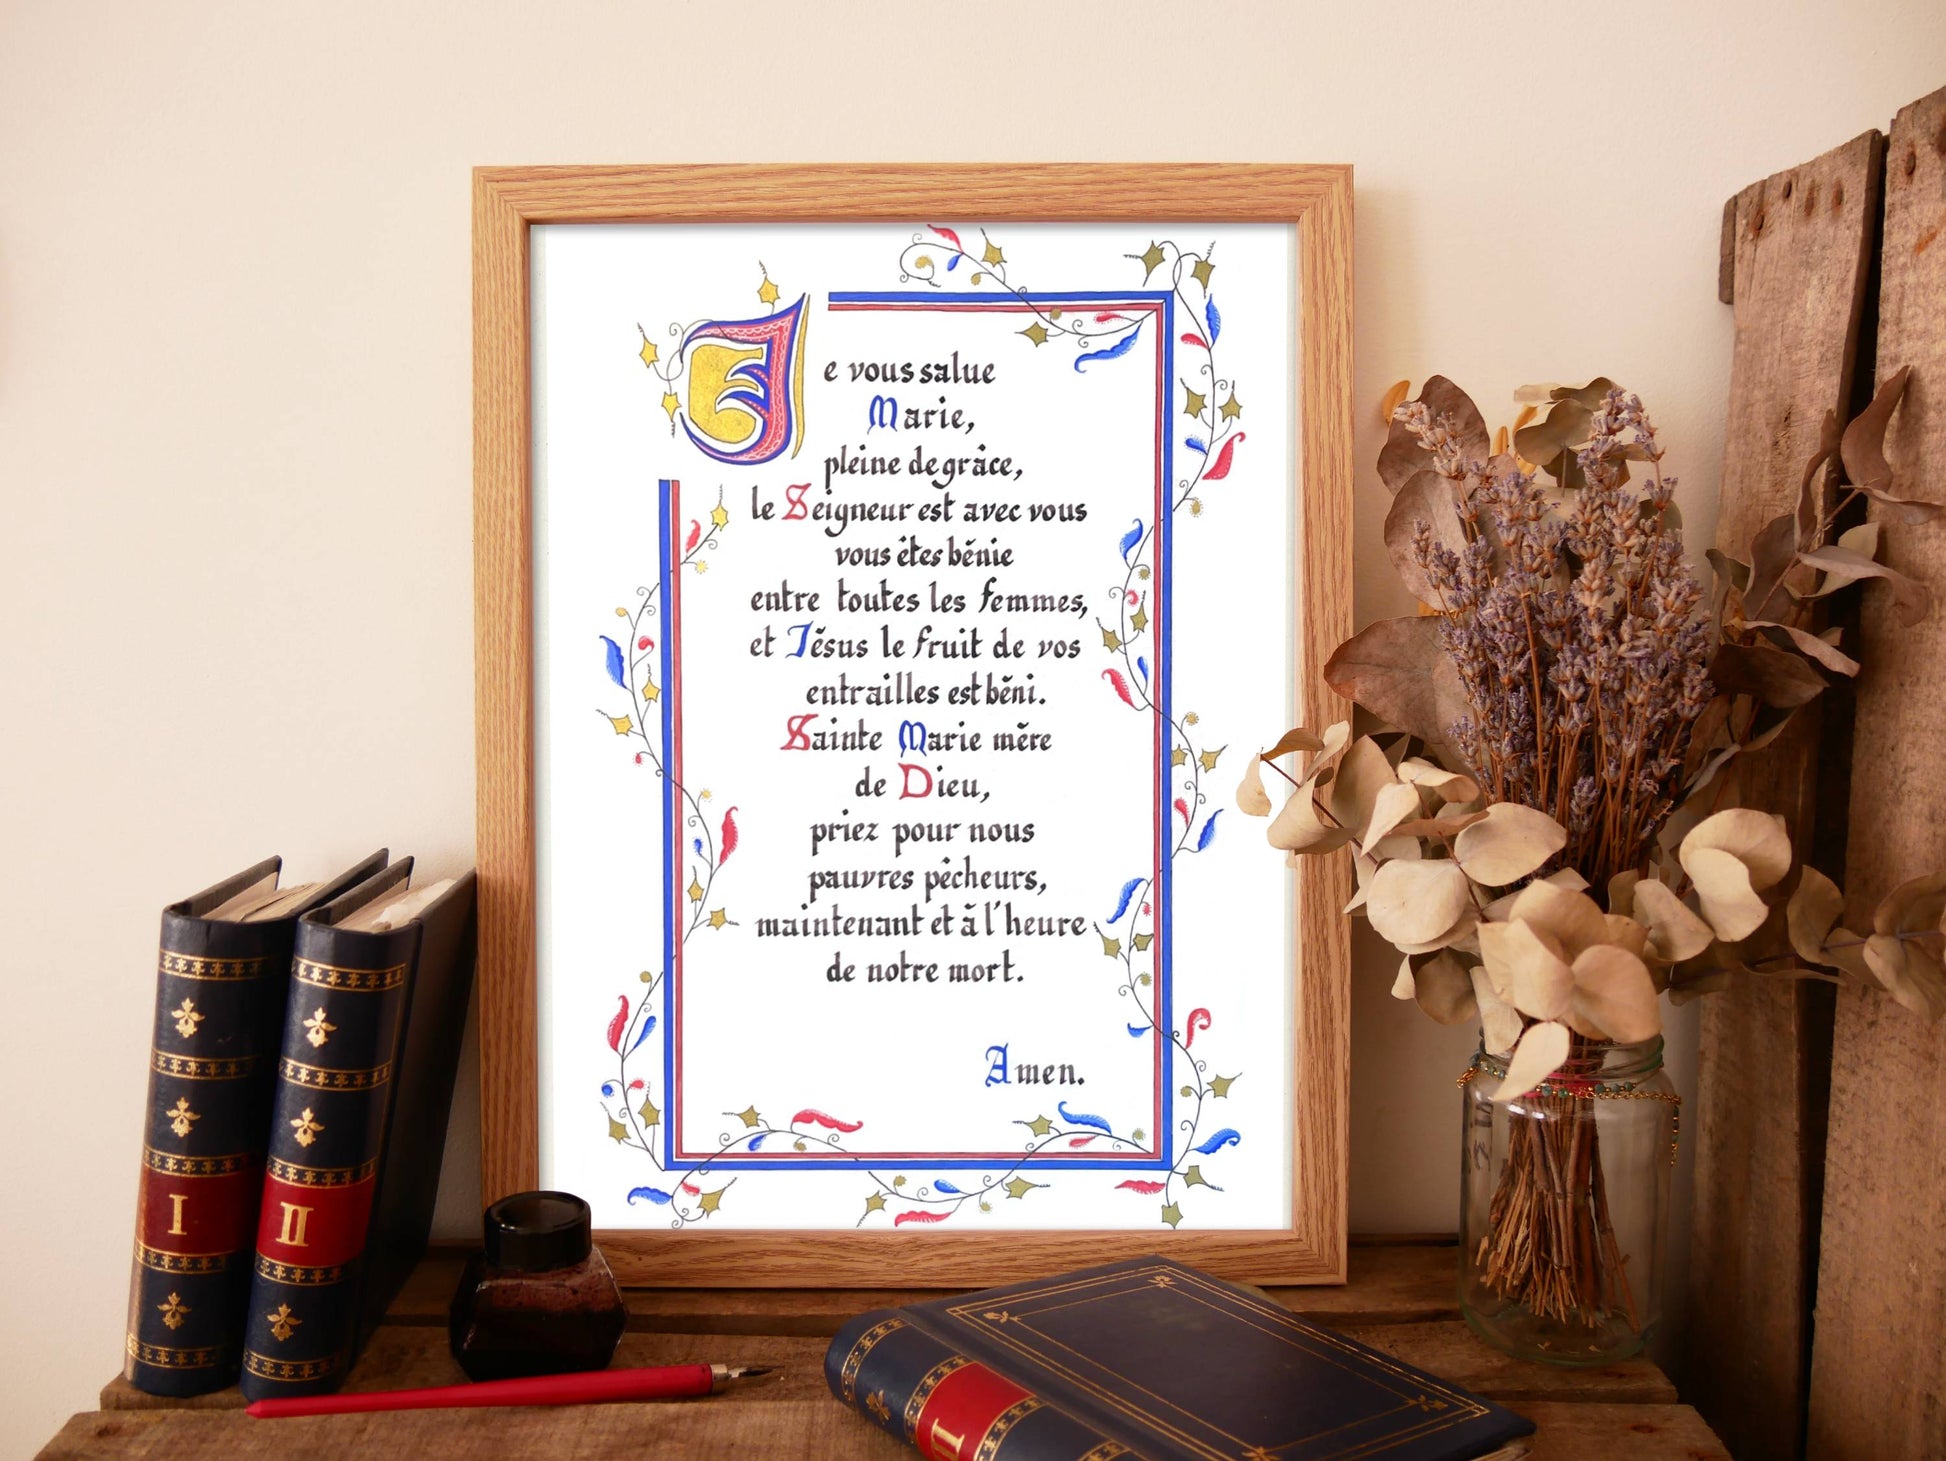 Je vous salue
Marie,
pleine de grâce,
le Seigneur est avec vous
vous êtes bénie
entre toutes les femmes,
et Jésus le fruit de vos
entrailles est béni.
Sainte Marie mère
de Dieu,
priez pour nous
pauvres pêcheurs,
maintenant et à l'heure
de notre mort.
Amen.
I
II
II